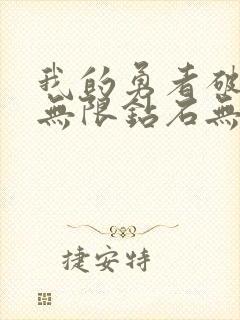 我的勇者破
無限鉆石無
捷安特